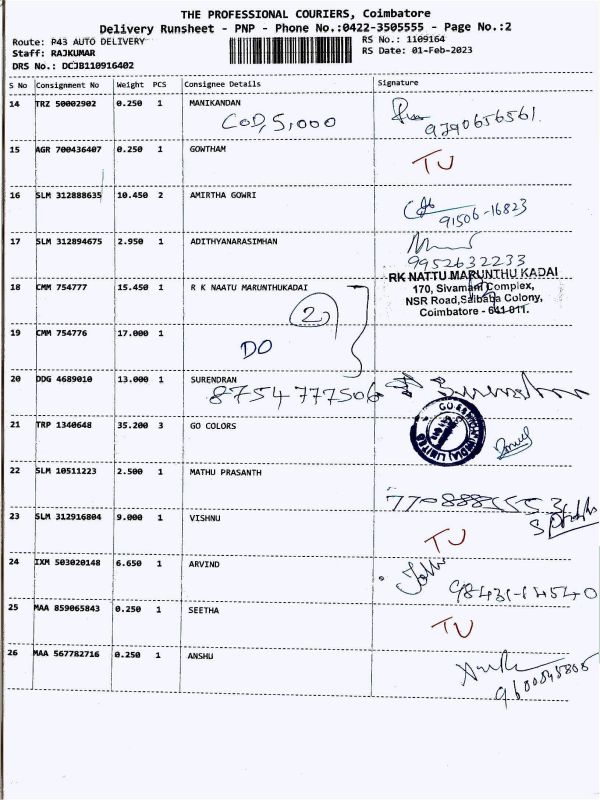 THE PROFESSIONAL COURIERS, Coimbatore
Delivery Runsheet - PNP - Phone No.:0422-3505555 - Page No.:2
Route: P43 AUTO DELIVERY
RS No.: 1109164
Staff: RAJKUMAR
RS Date: 01-Feb-2023
DRS No.: DCJB110916402
S No Consignment No Weight PCS Consignee Details Signature
14 TRZ 50002902 0.250 1 MANIKANDAN
COD, 5,000
9790656561
15 AGR 700436407 0.250 1 GOWTHAM
TU
16 SLM 312888635 10.450 2 AMIRTHA GOWRI
91506-16823
17 SLM 312894675 2.950 1 ADITHYANARASIMHAN
9952632233
RK NATTU MARUNTHU KADAI
18 CMM 754777 15.450 1 R K NAATU MARUNTHUKADAI
170, Sivamani Complex,
NSR Road, Saibaba Colony,
Coimbatore - 641 011.
2
19 CMM 754776 17.000 1
DO
20 DDG 4689010 13.000 1 SURENDRAN
8754777506 Surendran
21 TRP 1340648 35.200 3 GO COLORS
22 SLM 10511223 2.500 1 MATHU PRASANTH
23 SLM 312916804 9.000 1 VISHNU
TU
24 IXM 503020148 6.650 1 ARVIND
98431-14540
25 MAA 859065843 0.250 1 SEETHA
TU
26 MAA 567782716 0.250 1 ANSHU
9600045805